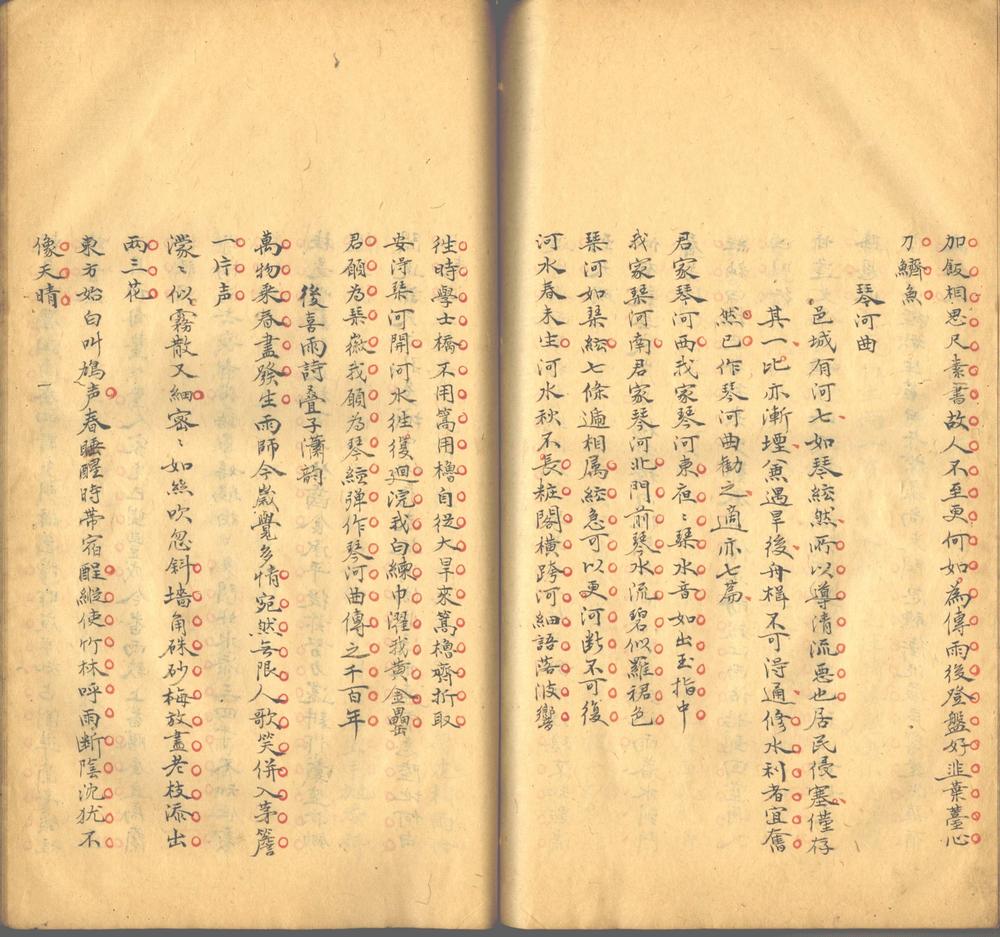 加飯相思尺素書故人不至更何如為傳雨後登盤好韭葉薹心
刀鱭魚
琴河曲
邑城有河七如琴絃然所以導清流惡也居民侵塞僅存
其一比亦漸堙兼遇旱後舟楫不可淂通修水利者宜奮
然已作琴河曲勸之適亦七篇
君家琴河西我家琴河東夜〻琹水音如出玉指中
我家琹河南君家琴河北門前琴水流碧似羅裙色
琹河如琹絃七條遞相属絃急可以更河断不可復
河水春未生河水秋不長粧閣橫跨河細語落波響
徃時學士橋不用篙用櫓自從大旱來篙櫓齊折取
安淂琹河開河水徃復迴浣我白練巾濯我黄金罍
君願為琹徽我願為琴絃弹作琴河曲傳之千百年
後喜雨詩叠子瀟韵
萬物乘春盡發生雨師今嵗覺多情宛然無限人歌笑併入茅簷
一片声
濛〻似霧散又細密〻如絲吹忽斜墻角硃砂梅放盡老枝添出
兩三花
東方始白叫鳩声春睡醒時帶宿酲縱使竹林呼雨断陰沈犹不
像天晴